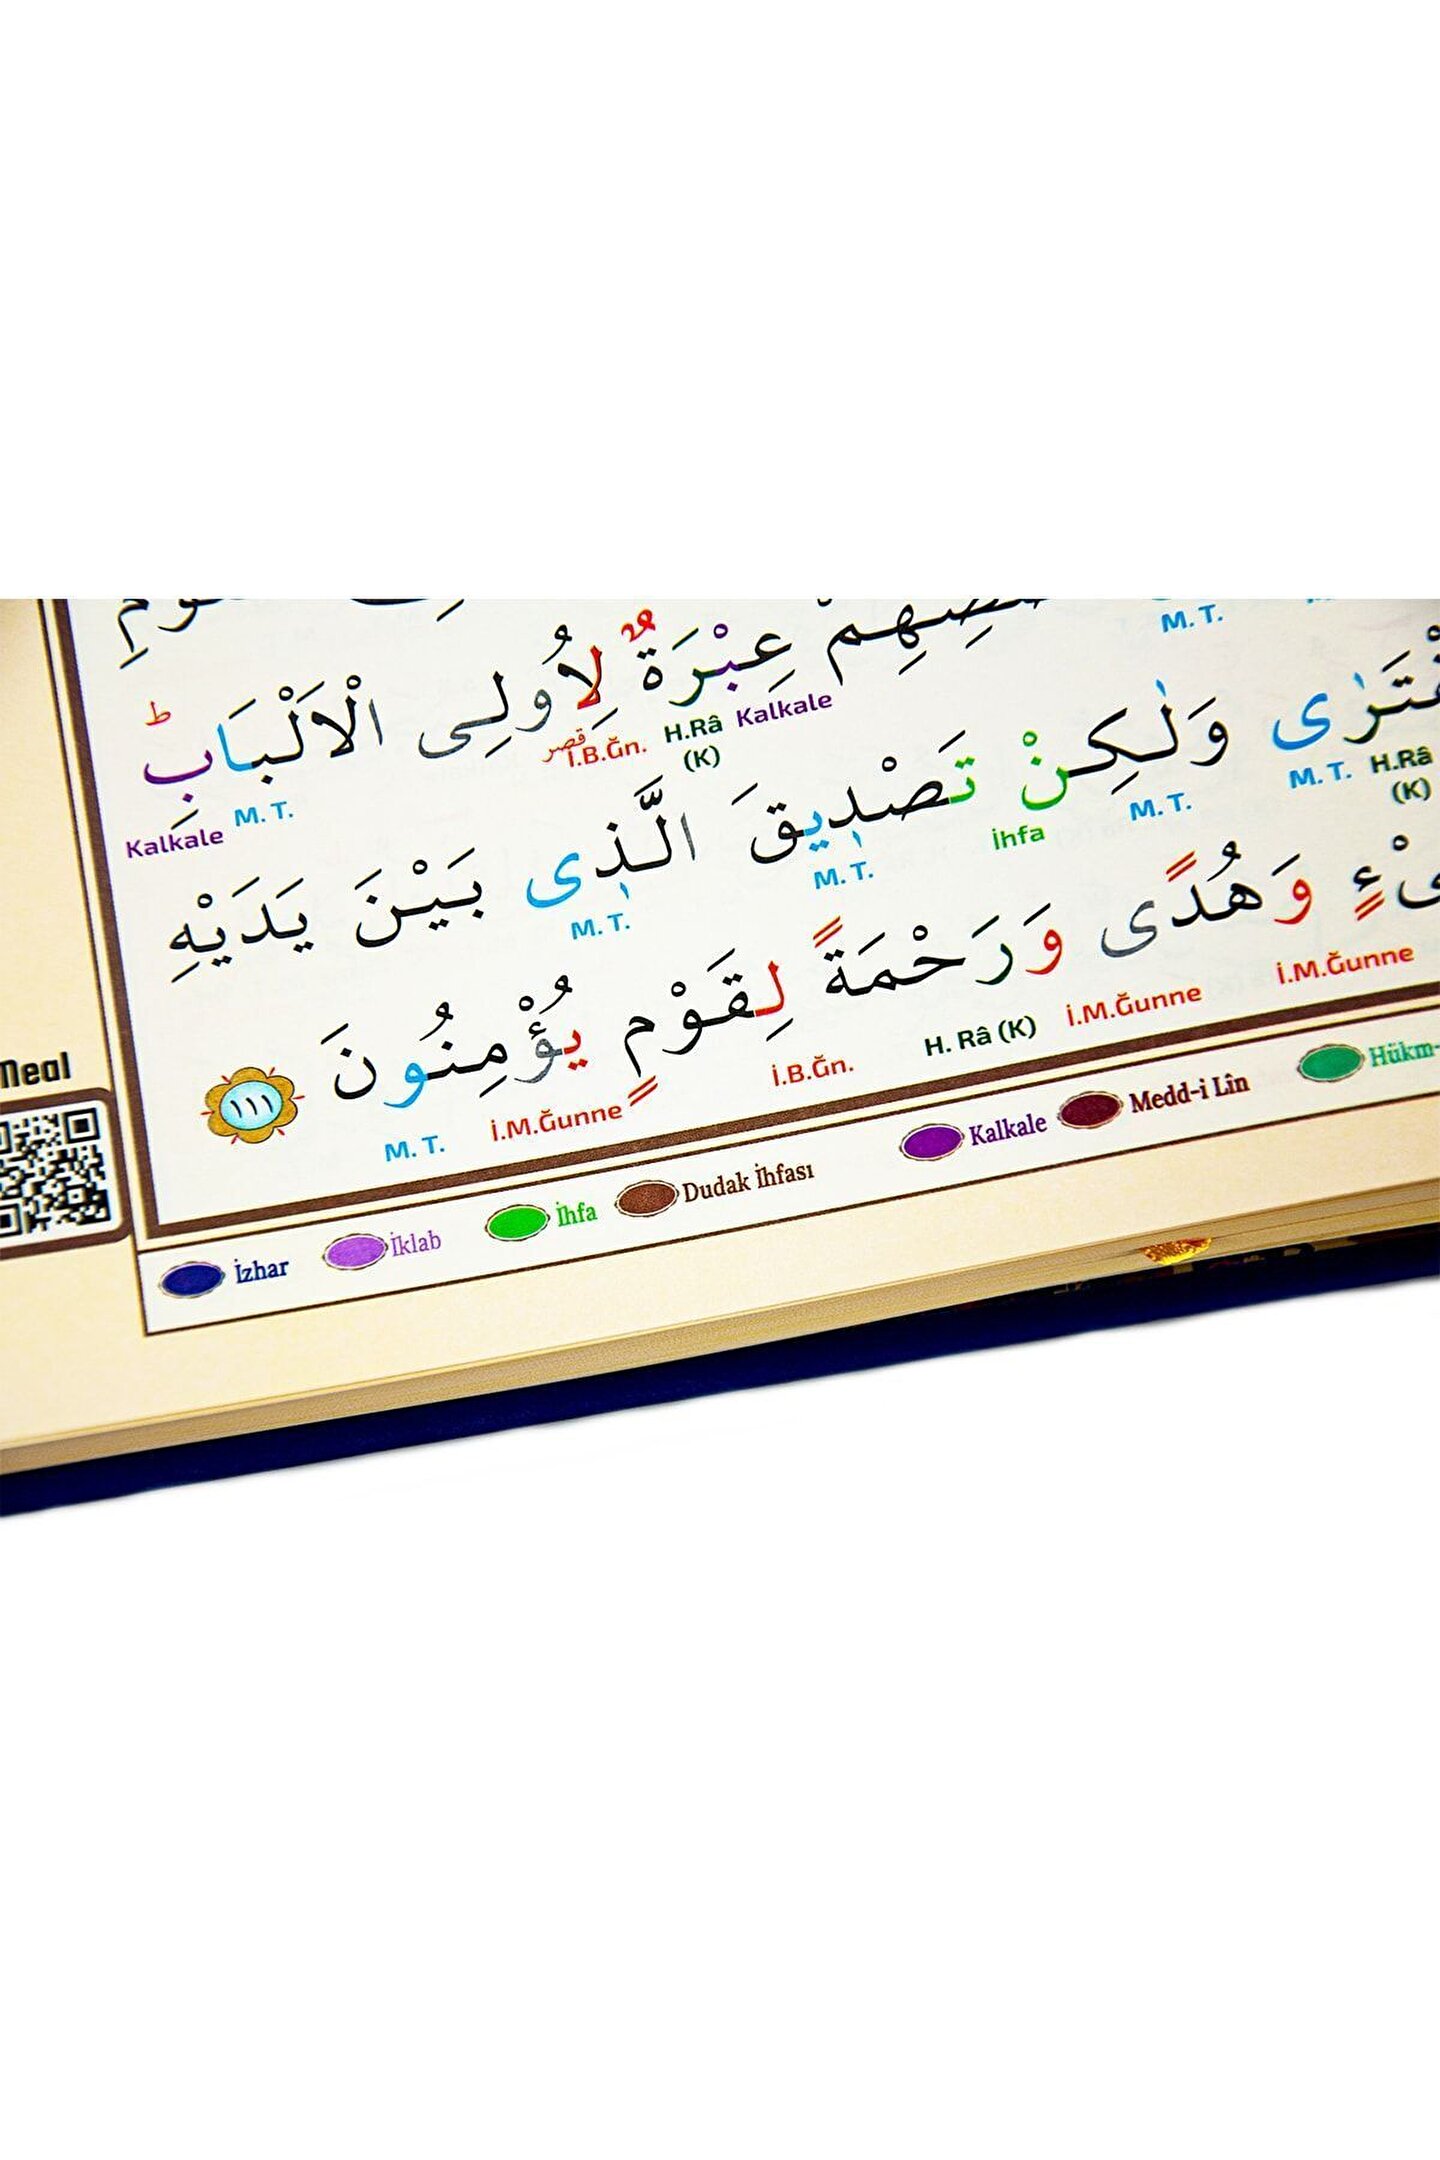 M. T.
قَصَصِهِمْ عِبْرَةٌ لِاُولِى الْاَلْبَابِ ط
Kalkale H.Râ (K) İ.B.Ğn. قصر M. T. Kalkale
وَلٰكِنْ تَصْدٖيقَ الَّذٖى بَيْنَ يَدَيْهِ
H.Râ (K) M. T. M. T. İhfa M. T. M. T.
وَهُدًى وَرَحْمَةً لِقَوْمٍ يُؤْمِنُونَ ١١١
İ.M.Ğunne İ.M.Ğunne H. Râ (K) İ.B.Ğn. İ.M.Ğunne M. T.
Meal
İzhar İklab İhfa Dudak İhfası Kalkale Medd-i Lîn